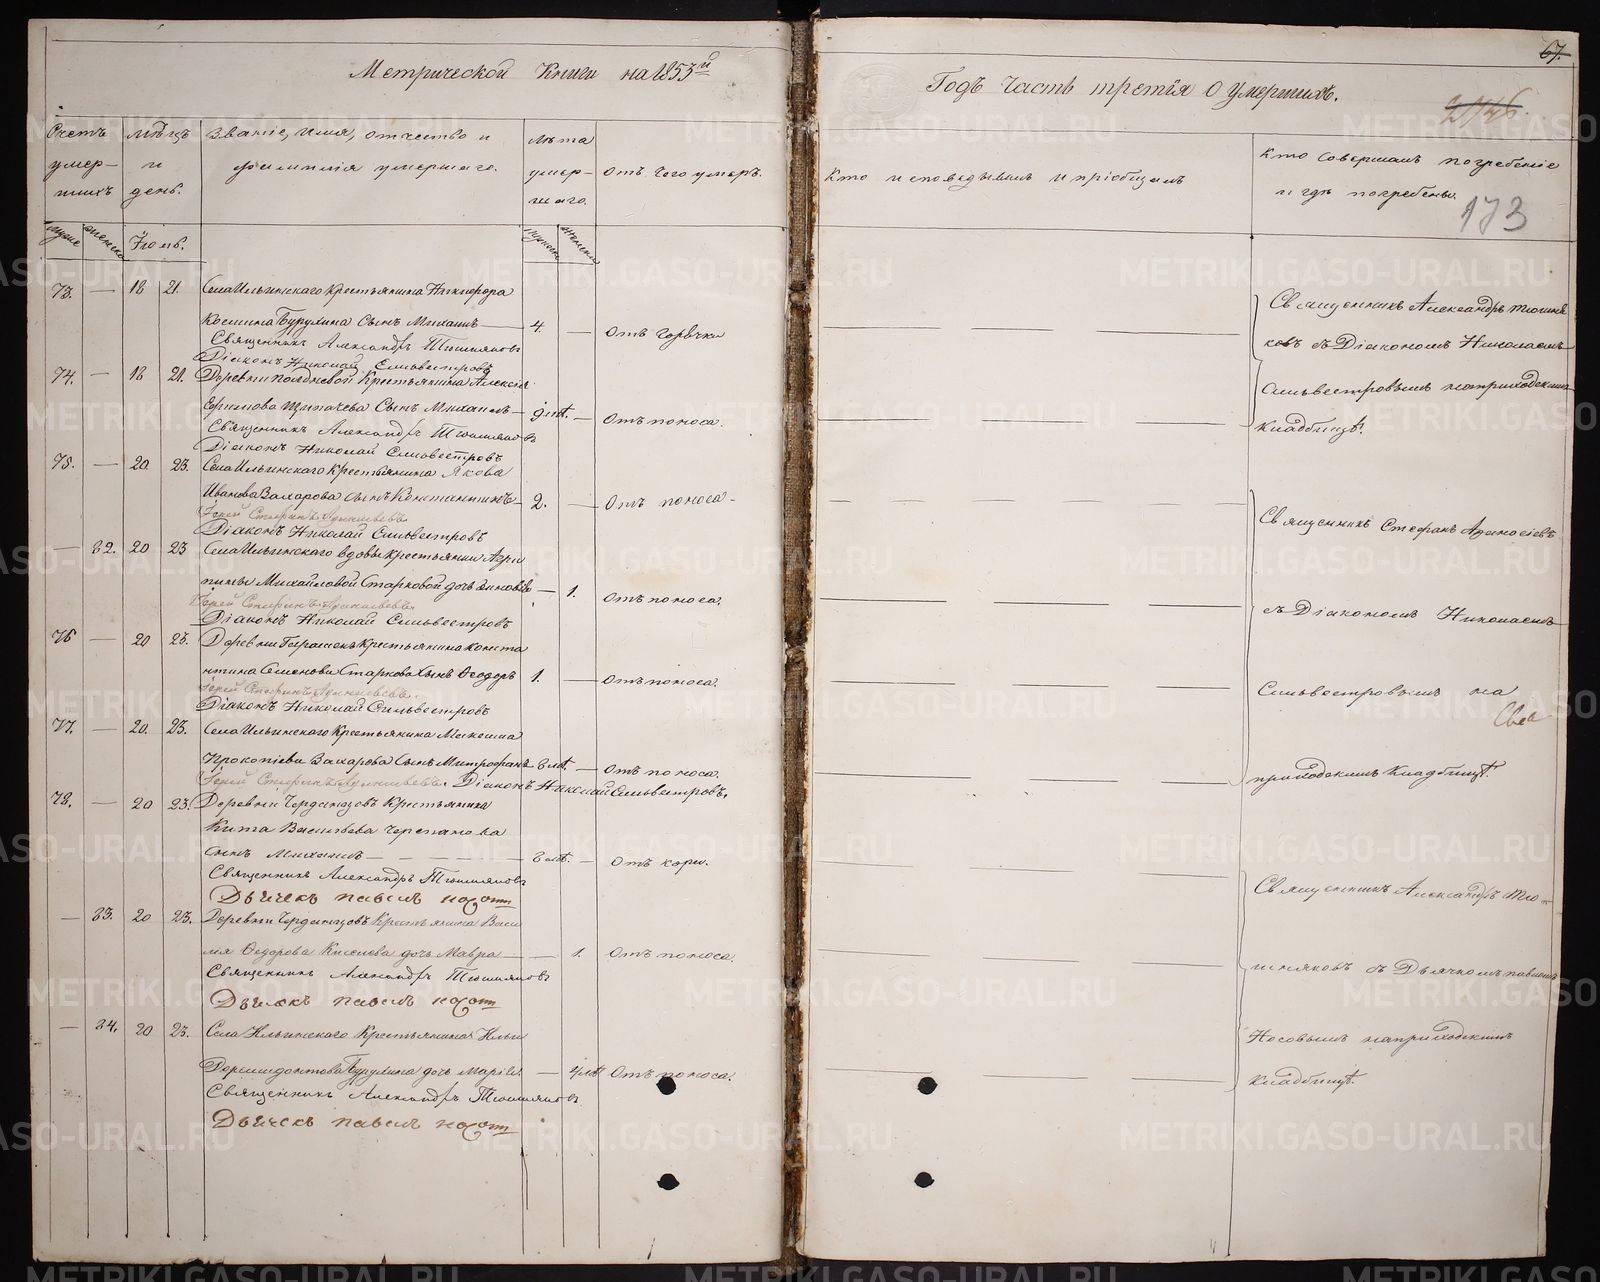 Метрической Книги на 1853й
Годъ Часть третія О умершихъ.
67.
173
Счетъ умер-шихъ
мѣсяцъ и день.
Званіе, имя, отчество и
фамилія умершаго.
Лѣта умер-шаго.
Отъ чего умеръ.
Кто исповѣдывалъ и пріобщалъ
Кто совершалъ погребеніе
и гдѣ погребены.
Іюль.
73. — 18 21. Села Ильинскаго Крестьянина Никифора
Козмина Бурухина Сынъ Михаилъ — 4. — Отъ горячки
Священникъ Александръ Тюшняковъ
Діаконъ Николай Сильвестровъ
74. — 18 21. Деревни Полдневой Крестьянина Алексія
Сынъ Михаилъ — — Отъ поноса.
Священникъ Александръ Тюшняковъ
Діаконъ Николай Сильвестровъ
75. — 20. 23. Села Ильинскаго Крестьянина Якова
Иванова Захарова сынъ Константинъ — 2. — Отъ поноса
Іерей Стефанъ
Діаконъ Николай Сильвестровъ
— 32. 20 23 Села Ильинскаго вдовы Крестьянки Агри
пины Михайловой Старковой дочь — 1. Отъ поноса.
Іерей Стефанъ
Діаконъ Николай Сильвестровъ
76 — 20 23. Деревни Крестьянина Конста
нтина Семенова Старкова Сынъ Ѳеодоръ 1. — Отъ поноса.
Іерей Стефанъ
Діаконъ Николай Сильвестровъ
77. — 20. 23. Села Ильинскаго Крестьянина Максима
Прокопіева Захарова Сынъ Митрофанъ — Отъ поноса.
Іерей Стефанъ Діаконъ Николай Сильвестровъ.
78. — 20 23. Деревни Черданцовъ Крестьянина
Кита Васильева Черепанова
сынъ Михаилъ — — Отъ кори.
Священникъ Александръ Тюшняковъ
Дьячекъ павелъ носовъ
— 33. 20 23. Деревни Черданцовъ Крестьянина Васи
лія Ѳедорова Киселева дочь Мавра — 1. Отъ поноса.
Священникъ Александръ Тюшняковъ
Дьячекъ павелъ носовъ
— 34. 20 23. Села Ильинскаго Крестьянина Ильи
Дормидонтова Бурухина дочь Марія — Отъ поноса.
Священникъ Александръ Тюшняковъ
Дьячекъ павелъ носовъ
Священникъ Александръ Тюшня
ковъ съ Діакономъ Николаемъ
Сильвестровымъ на приходскомъ
кладбищѣ.
Священникъ Стефанъ
съ Діакономъ Николаемъ
Сильвестровымъ на
приходскомъ Кладбищѣ.
Священникъ Александръ Тю-
шняковъ съ Дьячкомъ павломъ
Носовымъ на приходскомъ
кладбищѣ.
METRIKI.GASO-URAL.RU